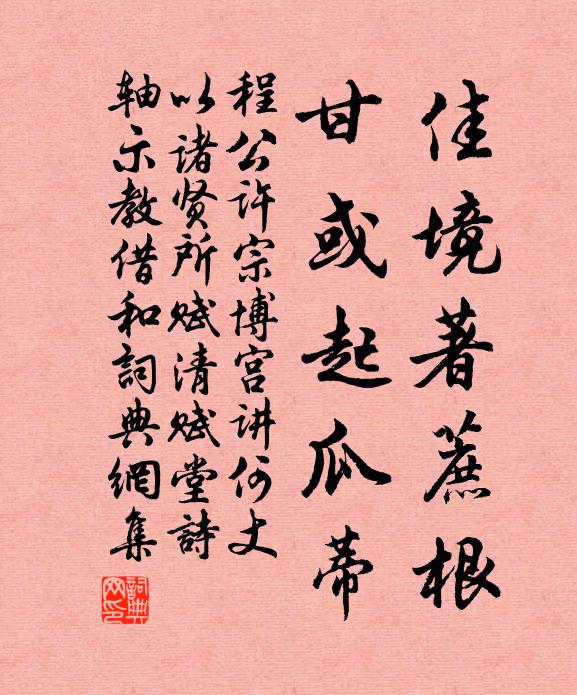 佳境著蔗根
甘或起瓜蒂
程公许宗博宫讲何丈
以诸贤所赋清赋堂詩
轴示教借和詞典網集
詞典网印